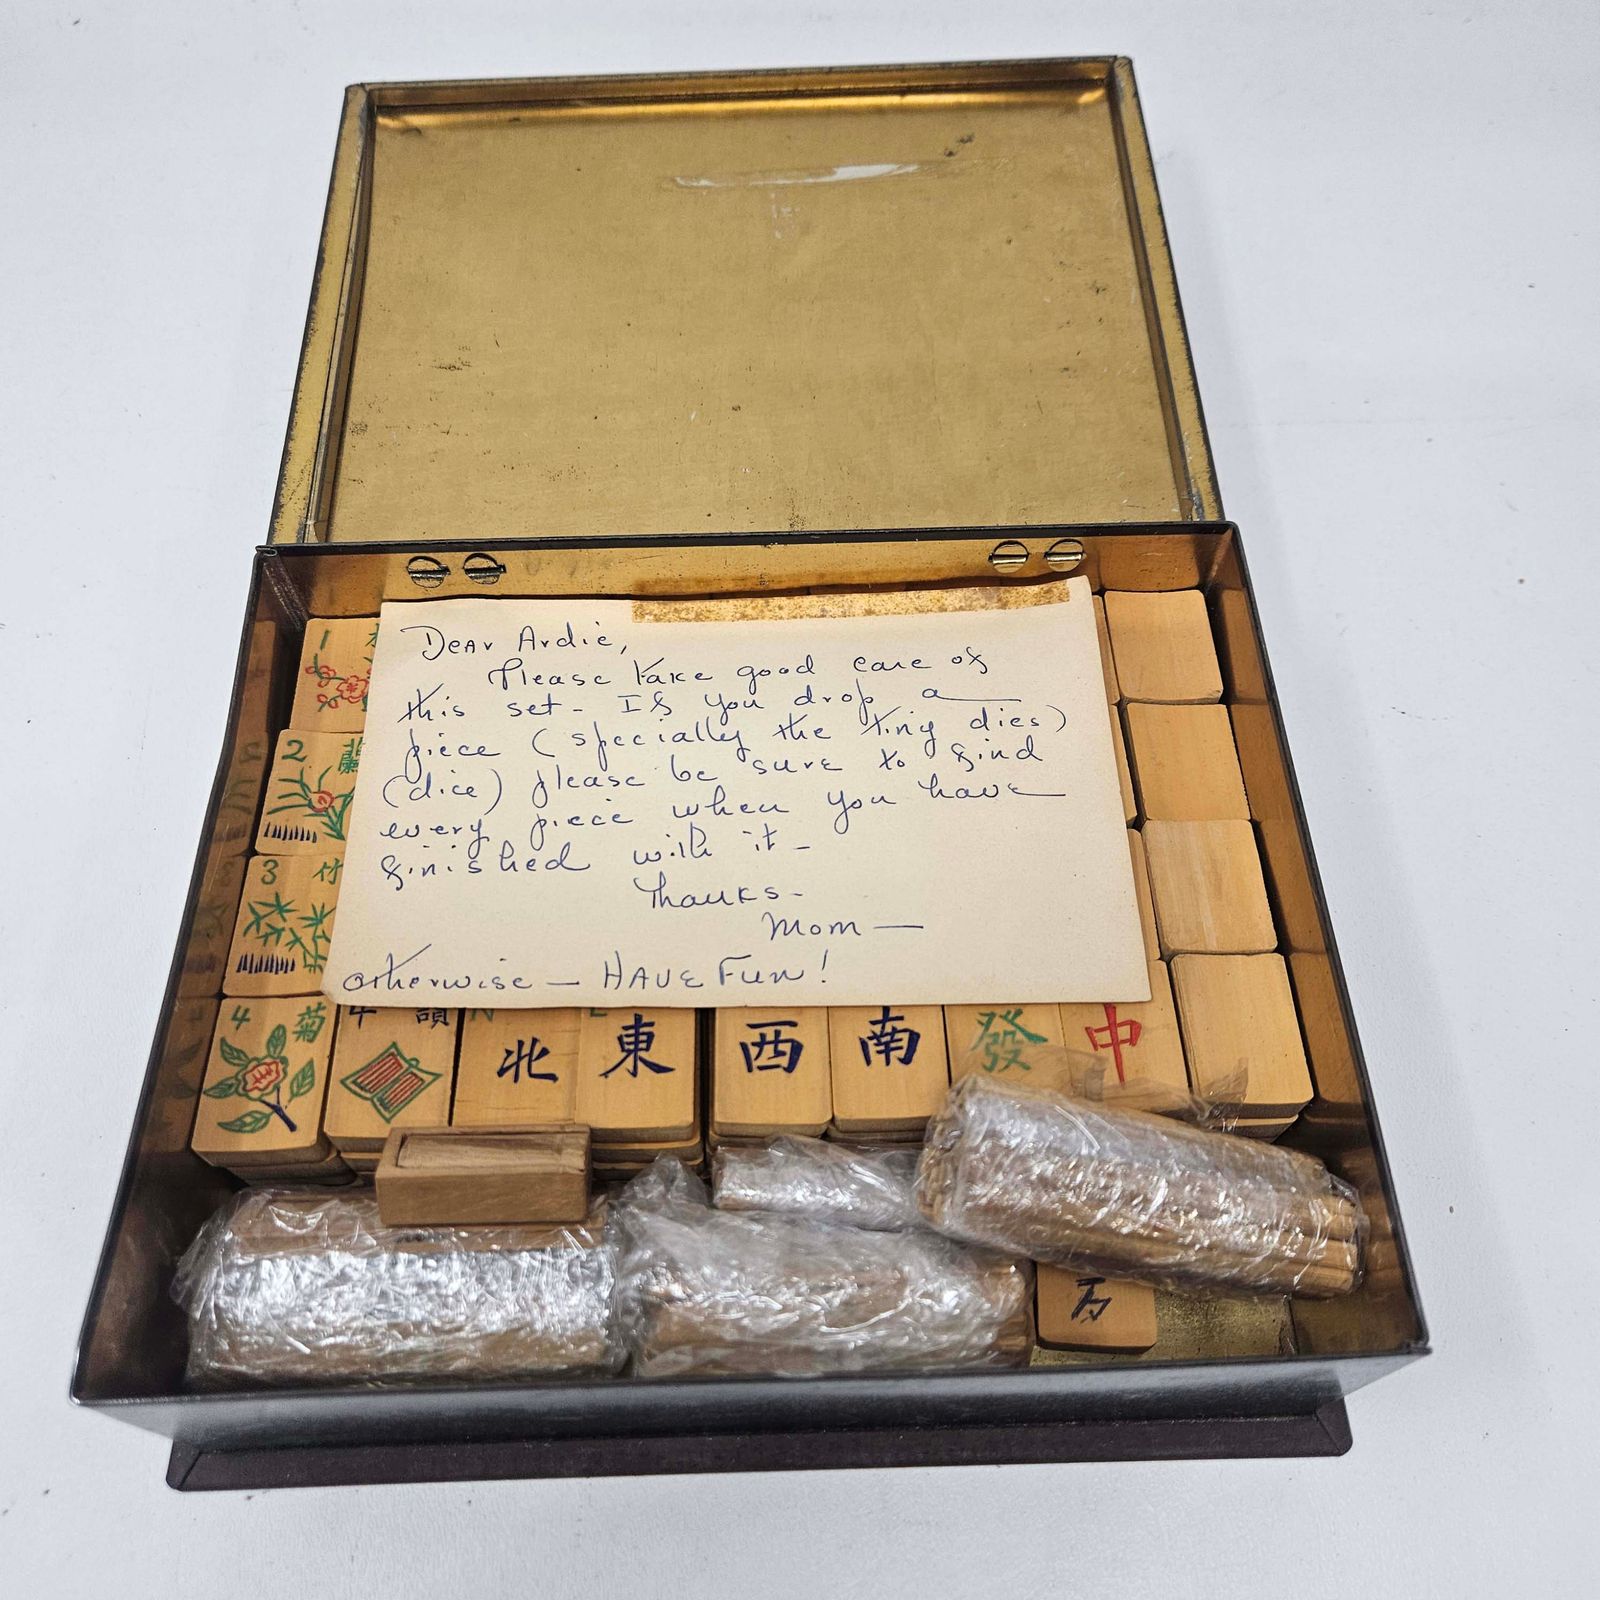 Dear Ardie,
Please take good care of
this set - If you drop a
piece (specially the tiny dies)
(dice) please be sure to find
every piece when you have
finished with it -
Thanks -
Mom —
otherwise — HAVE Fun!
1
2 蘭
3 竹
4 菊
4
N 北
東
西
南
發
中
万